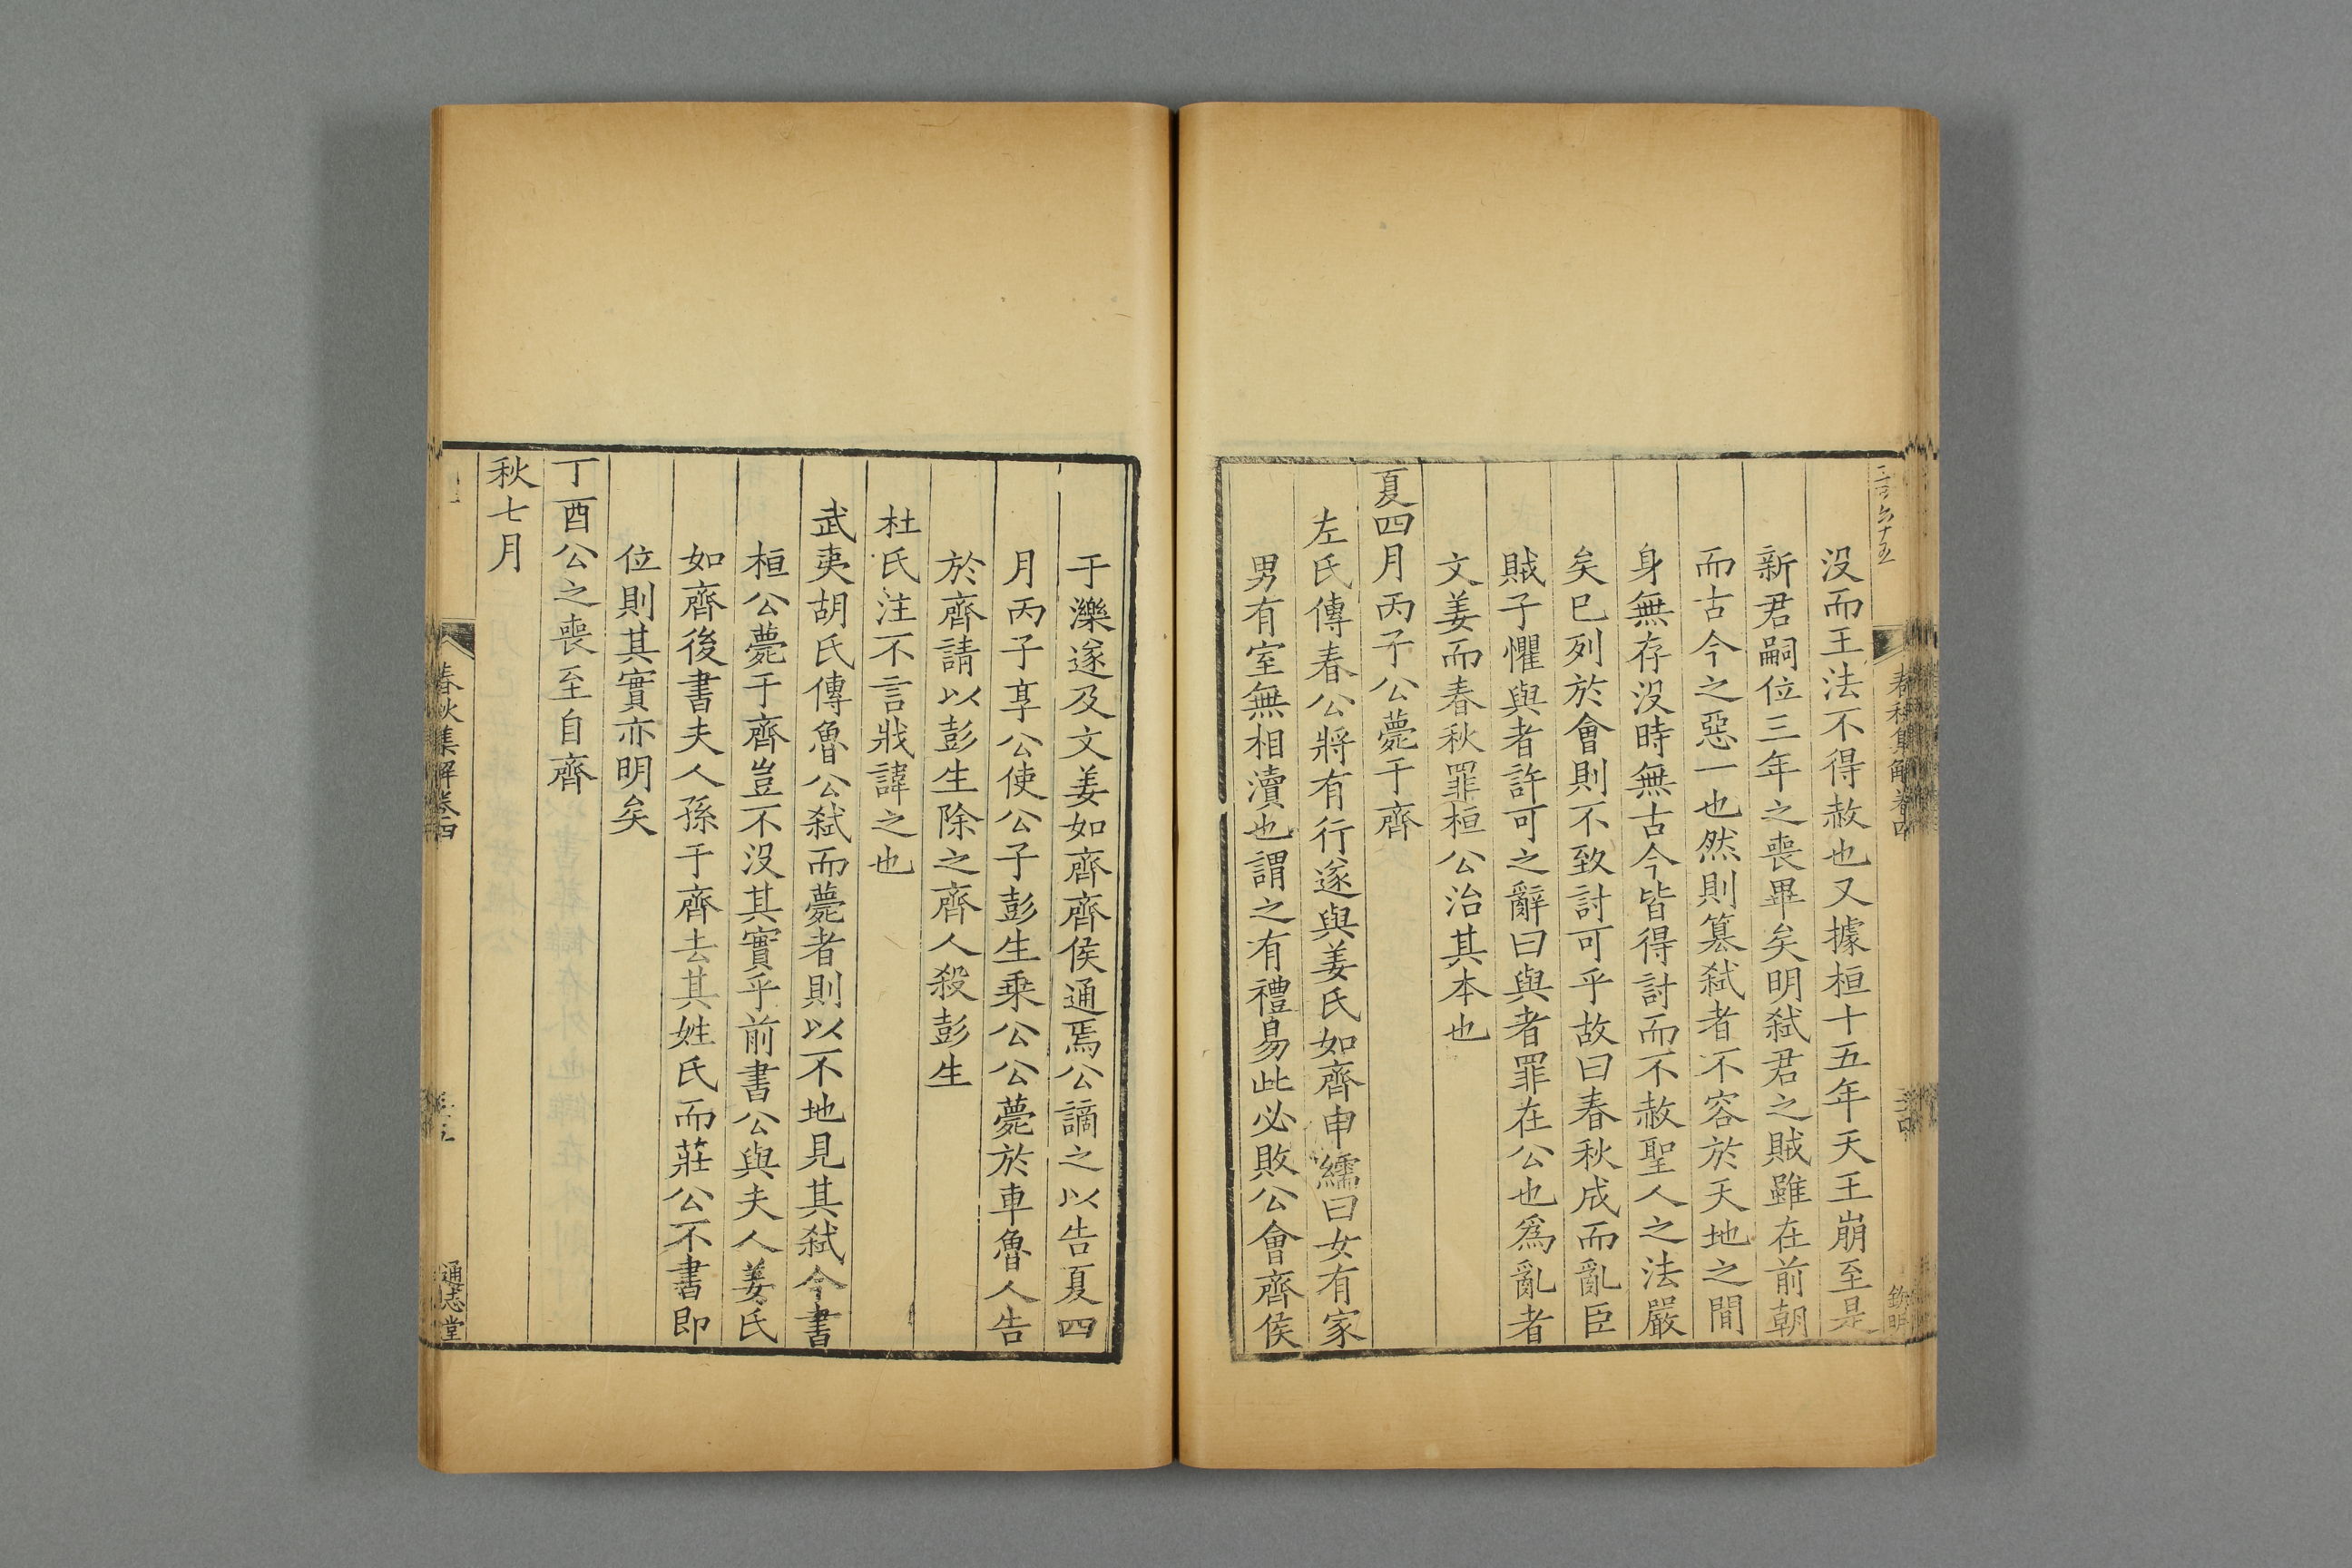 三百六十五
春秋集解卷四
三十四
没而王法不得赦也又據桓十五年天王崩至是
新君嗣位三年之喪畢矣明弒君之賊雖在前朝
而古今之惡一也然則篡弒者不容於天地之間
身無存没時無古今皆得討而不赦聖人之法嚴
矣已列於會則不致討可乎故曰春秋成而亂臣
賊子懼與者許可之辭曰與者罪在公也爲亂者
文姜而春秋罪桓公治其本也
夏四月丙子公薨于齊
左氏傳春公將有行遂與姜氏如齊申繻曰女有家
男有室無相瀆也謂之有禮易此必敗公會齊侯
于濼遂及文姜如齊齊侯通焉公謫之以告夏四
月丙子享公使公子彭生乗公公薨於車魯人告
於齊請以彭生除之齊人殺彭生
杜氏注不言戕諱之也
武夷胡氏傳魯公弒而薨者則以不地見其弒今書
桓公薨于齊豈不没其實乎前書公與夫人姜氏
如齊後書夫人孫于齊去其姓氏而莊公不書即
位則其實亦明矣
丁酉公之喪至自齊
秋七月
春秋集解卷四
通志堂